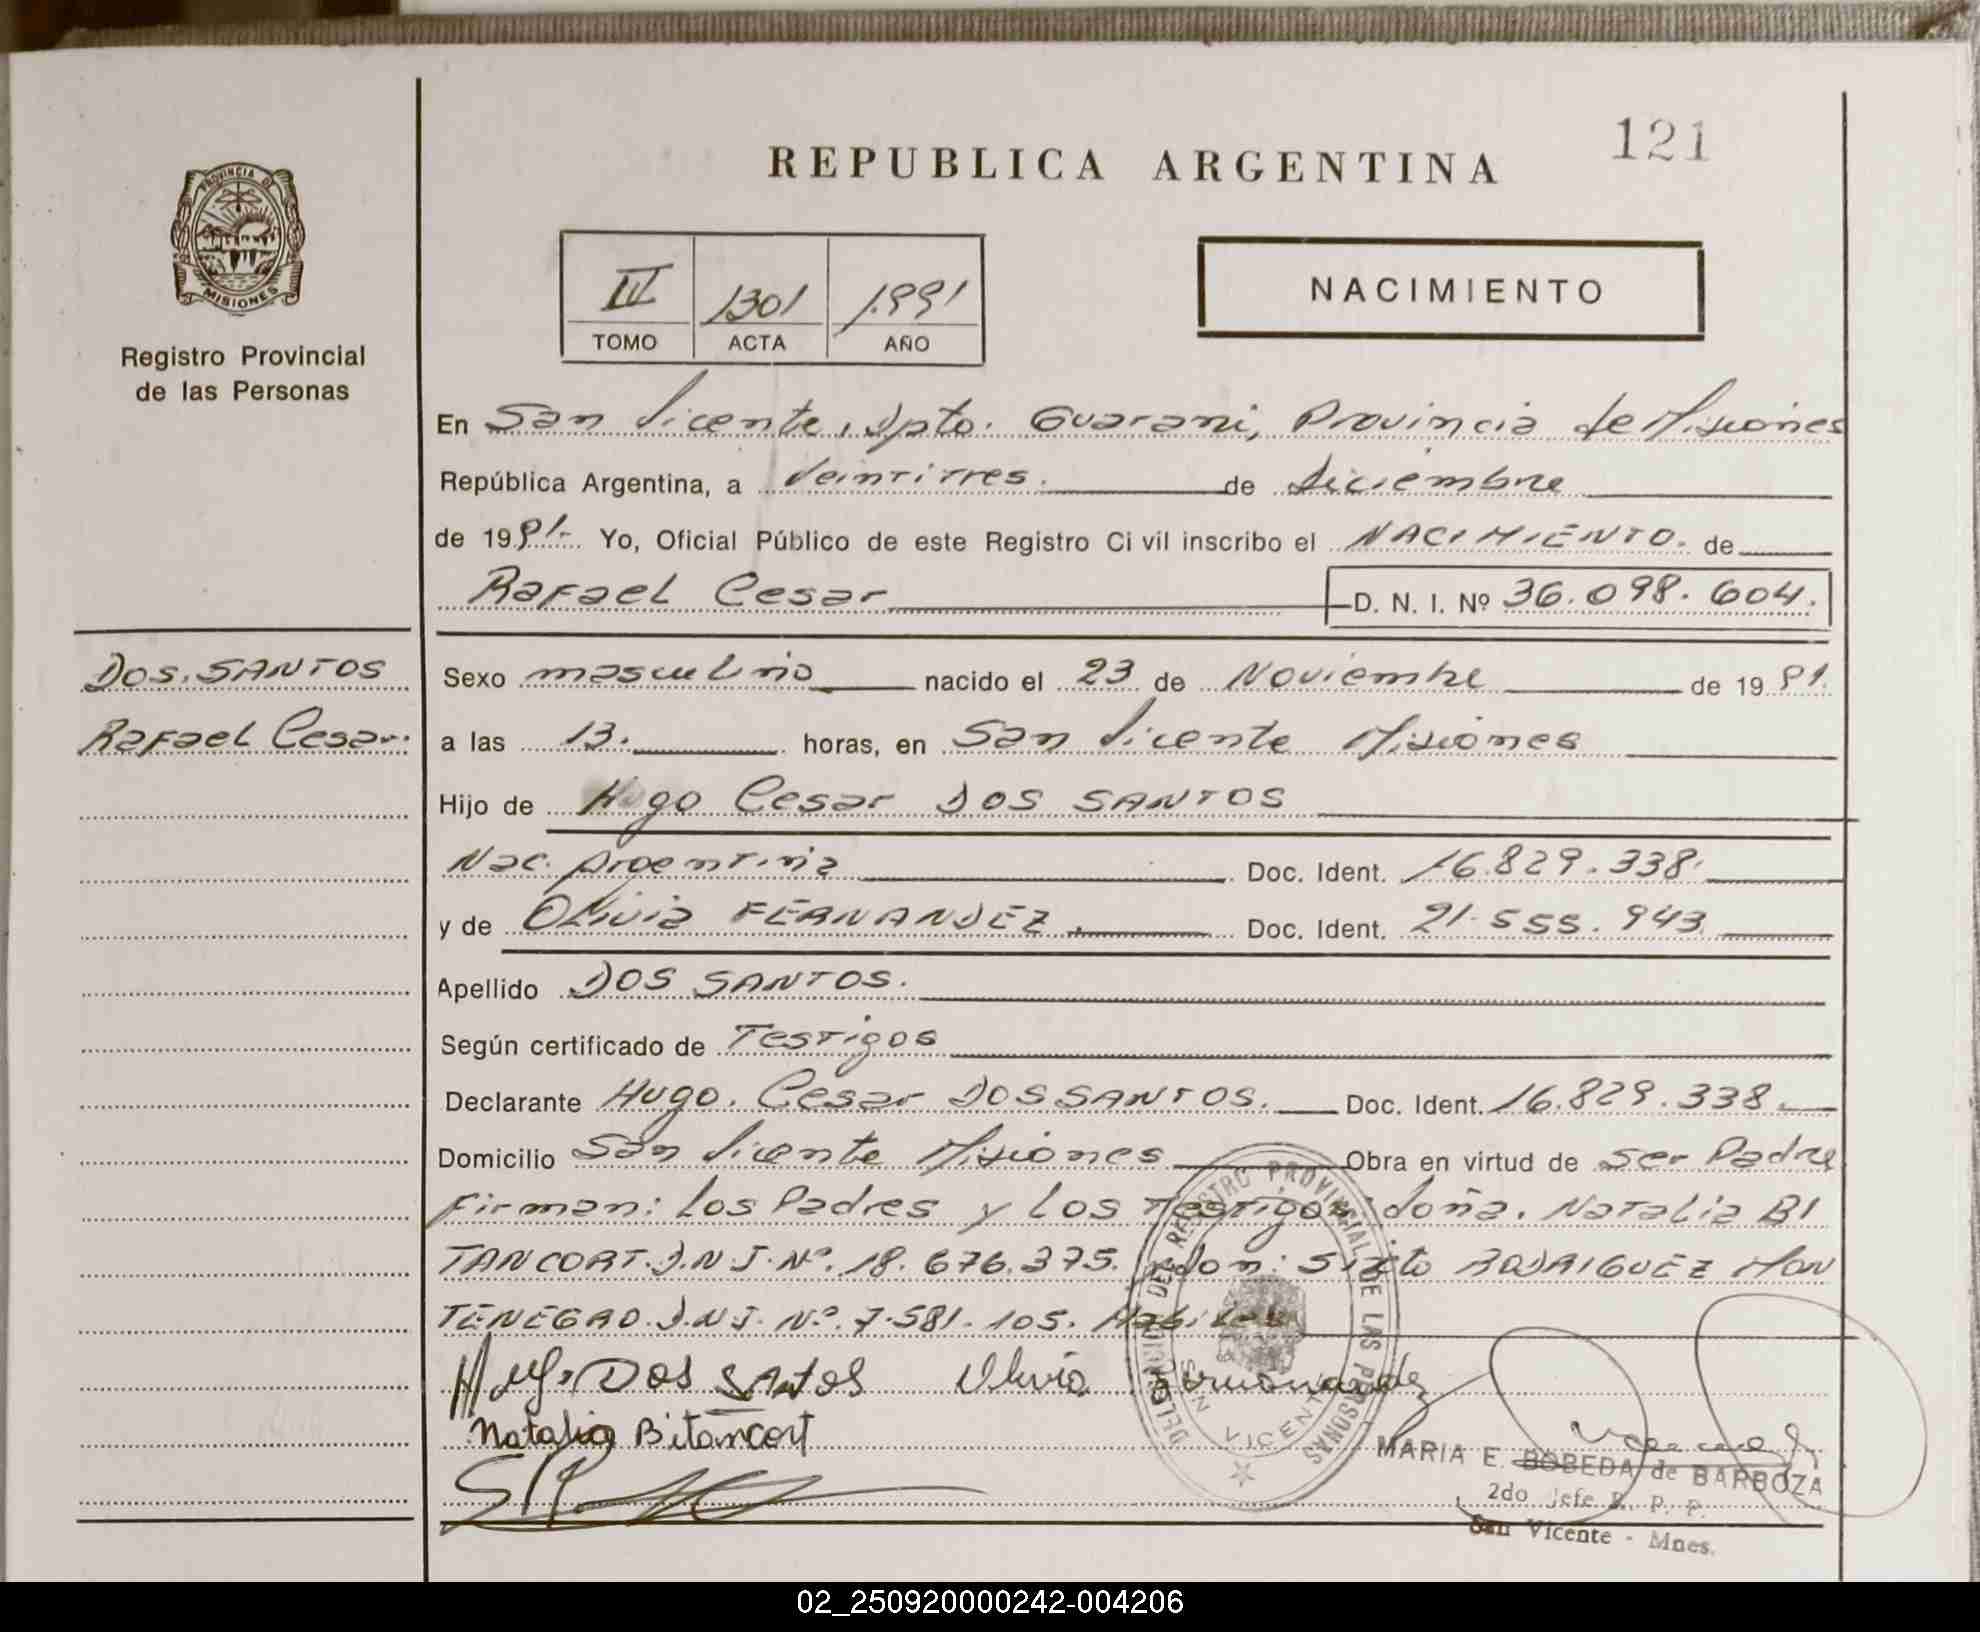 121
REPUBLICA ARGENTINA
PROVINCIA DE
MISIONES
Registro Provincial
de las Personas
1301 1.991
TOMO ACTA AÑO
NACIMIENTO
En San Vicente, Dpto. Guarani, Provincia de Misiones
República Argentina, a Veintitres. de Diciembre
de 1991.- Yo, Oficial Público de este Registro Ci vil inscribo el NACIMIENTO. de
Rafael Cesar D. N. I. Nº 36.098.604.
DOS. SANTOS
Rafael Cesar.
Sexo masculino nacido el 23 de Noviembre de 1991.
a las 13. horas, en San Vicente Misiones
Hijo de Hugo Cesar DOS SANTOS
Nac. Argentina Doc. Ident. 16.829.338.
y de Olivia FERNANDEZ. Doc. Ident. 21.555.943.
Apellido DOS SANTOS.
Según certificado de Testigos
Declarante Hugo. Cesar DOS SANTOS. Doc. Ident. 16.829.338.
Domicilio San Vicente Misiones Obra en virtud de ser Padre
Firman: Los Padres y Los Testigos doña. Natalia BI
TANCORT. D.N.I. Nº. 18.676.375. y don: Sixto RODRIGUEZ MON
TENEGRO. D.N.I. Nº. 7.581.105. Habiles
Hugo DOS SANTOS Olivia Fernandez
Natalia Bitancort
DELEGACION DEL REGISTRO PROVINCIAL DE LAS PERSONAS
SAN VICENTE
MARIA E. BOBEDA de BARBOZA
2do Jefe R. P. P.
San Vicente - Mnes.
02_250920000242-004206